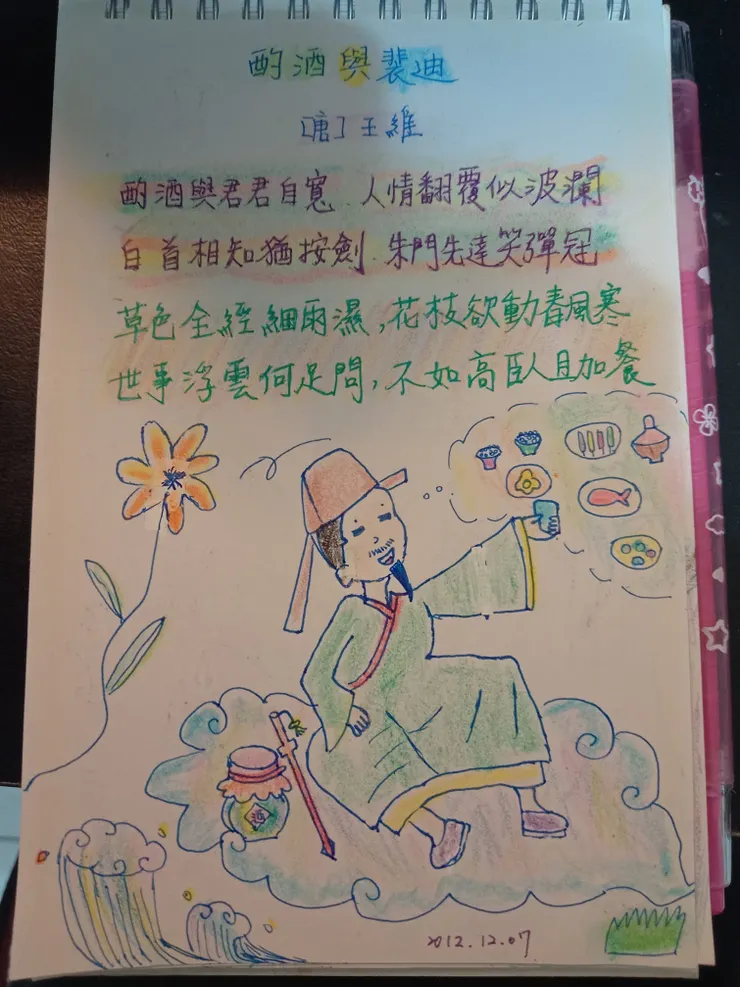 酌酒與裴迪
[唐] 王維
酌酒與君君自寬 人情翻覆似波瀾
白首相知猶按劍 朱門先達笑彈冠
草色全經細雨濕,花枝欲動春風寒
世事浮雲何足問,不如高臥且加餐
酒
2012.12.07